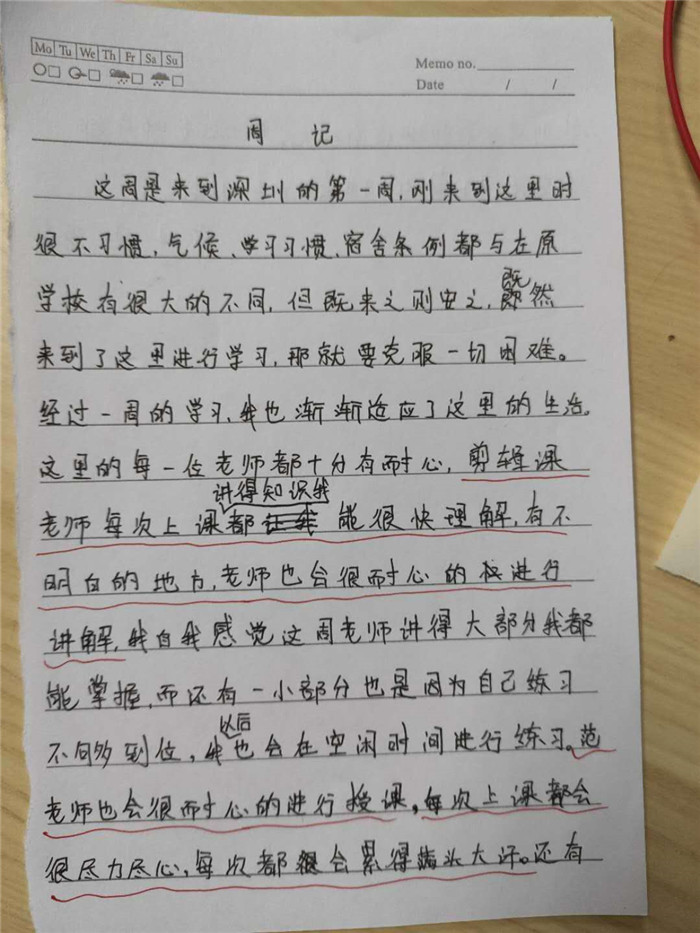 Mo Tu We Th Fr Sa Su
Memo no.
Date / /
周 记
这周是来到深圳的第一周,刚来到这里时
很不习惯,气候、学习习惯、宿舍条例都与在原
学校有很大的不同,但既来之则安之,既然
来到了这里进行学习,那就要克服一切困难。
经过一周的学习,我也渐渐适应了这里的生活。
这里的每一位老师都十分有耐心,剪辑课
老师每次上课都讲得知识我能很快理解,有不
明白的地方,老师也会很耐心的进行
讲解,我自我感觉这周老师讲得大部分我都
能掌握,而还有一小部分也是因为自己练习
不够到位,我以后也会在空闲时间进行练习。范
老师也会很耐心的进行授课。每次上课都会
很尽力尽心,每次都会累得满头大汗。还有